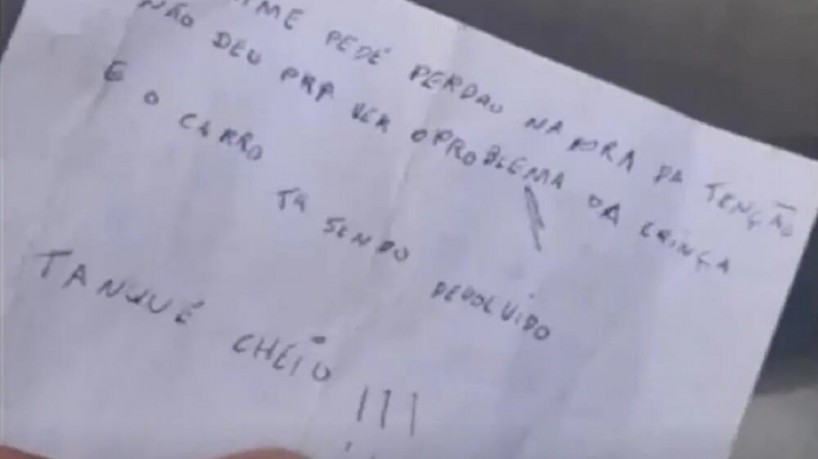 PEDÉ PERDAO NA ORA DA TENÇÃO
NÃO DEU PRA VER O PROBLEMA DA CRINÇA
E O CARRO TA SENDO DEVOLVIDO
TANQUÉ CHEIO !!!